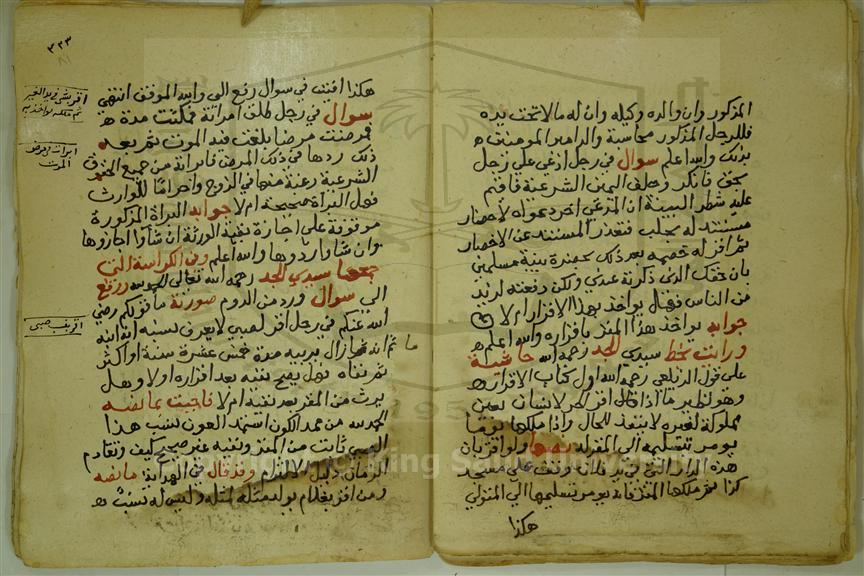 المذكور وان والده وكيله وان له مالا تحت يده
فللرجل المذكور محاسبة والزامه
بذلك والله اعلم سؤال في رجل ادعى على رجل
بحق فانكر وحلف اليمين الشرعية فاقيم
عليه شطر البينة ان المدعي اخر دعواه لاحضار
مستند له بجلب فتعذر المستند عن الاحضار
ثم اقر له خصمه بعد ذلك بحضرة بينة مسلمين
بان حقك الذي ذكرته عندي ولكن دفعته لزيد
من الناس فهل يواخذ بهذا الاقرار ام لا
جوابه يواخذ هذا المقر باقراره والله اعلم
ورايت بخط سيدي الجد رحمه الله حاشية
على قول الزيلعي رحمه الله اول كتاب الاقرار
وهو نظير ما اذا قال اقر الحر لانسان بعين
مملوكة لغيره لا ينفذ للحال واذا ملكها يوما
يومر بتسليمها الى المقر له بها ولو اقر بان
هذه الدار التي في يد فلان وقف على مسجد
كذا ثم ملكها المقر فانه يومر بتسليمها الى المتولي
هكذا
٣٣٣
هكذا افتيت في سوال رفع الي والله الموفق انتهى
سوال في رجل طلق امراته فمكثت مدة
فمرضت مرضا بلغت فيه الموت ثم بعد
ذلك ردها في ذلك المرض فابراته من جميع الحقوق
الشرعية رغبة منها في الزوج واحراما للوارث
فهل البراة صحيحة ام لا جوابه البراة المذكورة
موقوفة على اجازة بقية الورثة ان شاوا اجازوها
وان شاوا ردوها والله اعلم ومن الكراسة التي
جمعها سيدي الجد رحمه الله تعالى ورفع
الي سوال ورد من الروم صورته ما قولكم رضي
الله عنكم في رجل اقر لصبي لا يعرف نسبه انه ابنه
ثم انه ما زال يربيه مدة خمس عشرة سنة او اكثر
ثم نفاه فهل يصح نفيه بعد اقراره اولا وهل
يرث من المقر بعد نفيه ام لا فاجبت بما نصه
الحمد لله من ممد الكون استمد العون نسب هذا
الصبي ثابت من المقر ونفيه غير صحيح كيف وتقادم
الزمان دليل الالتزام وقد قال في الهداية ما نصه
ومن اقر بغلام يولد مثله لمثله وليس له نسب
ابرات في مرض
الموت
اقر بنسب صبي